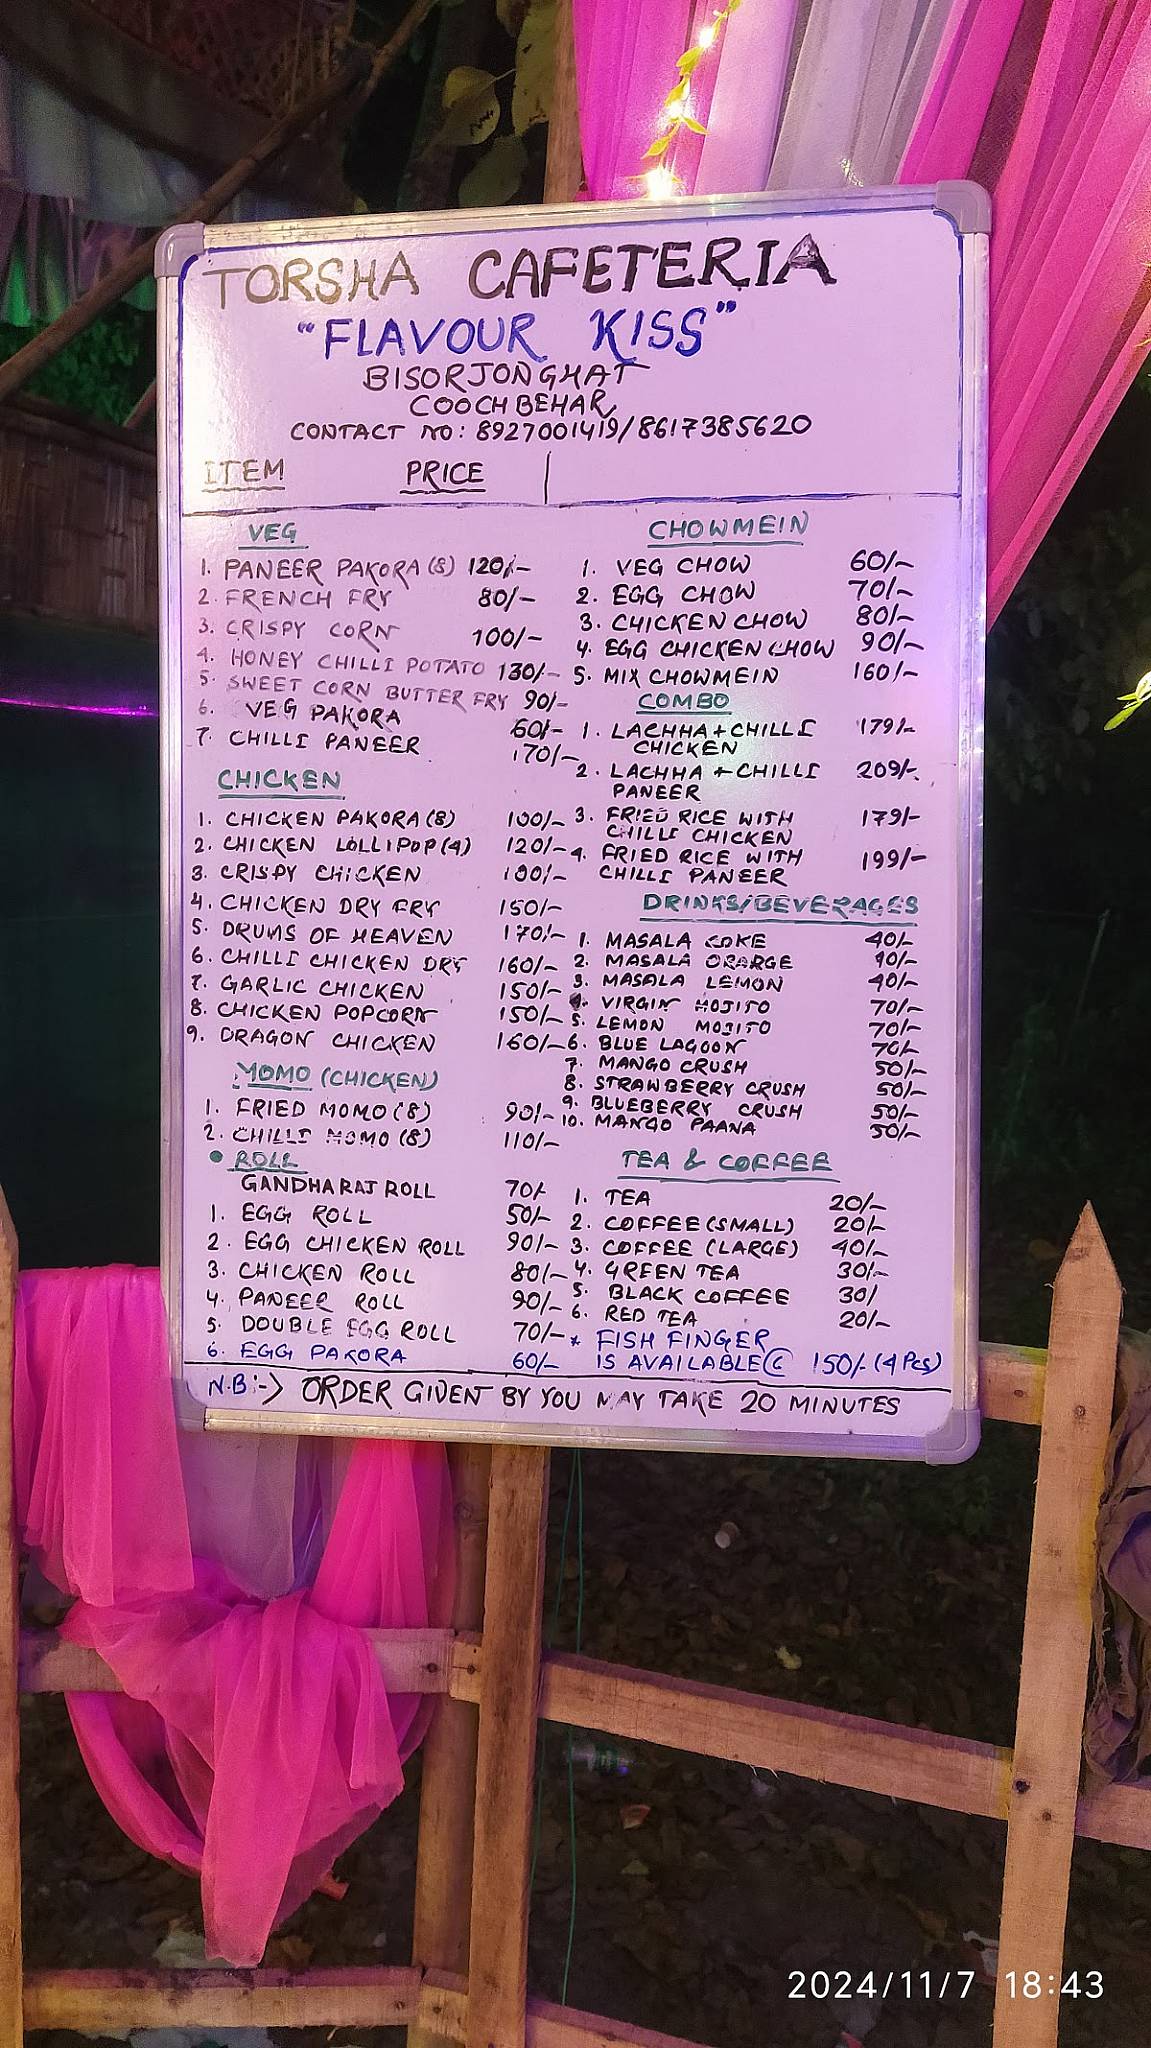 TORSHA CAFETERIA
"FLAVOUR KISS"
BISORJONGHAT
COOCHBEHAR
CONTACT NO: 8927001419/8617385620
ITEM PRICE
VEG
1. PANEER PAKORA (8) 120/-
2. FRENCH FRY 80/-
3. CRISPY CORN 100/-
4. HONEY CHILLI POTATO 130/-
5. SWEET CORN BUTTER FRY 90/-
6. VEG PAKORA 60/-
7. CHILLI PANEER 170/-
CHICKEN
1. CHICKEN PAKORA (8) 100/-
2. CHICKEN LOLLIPOP (4) 120/-
3. CRISPY CHICKEN 100/-
4. CHICKEN DRY FRY 150/-
5. DRUMS OF HEAVEN 170/-
6. CHILLI CHICKEN DRY 160/-
7. GARLIC CHICKEN 150/-
8. CHICKEN POPCORN 150/-
9. DRAGON CHICKEN 160/-
MOMO (CHICKEN)
1. FRIED MOMO (8) 90/-
2. CHILLI MOMO (8) 110/-
• ROLL
GANDHARAJ ROLL 70/-
1. EGG ROLL 50/-
2. EGG CHICKEN ROLL 90/-
3. CHICKEN ROLL 80/-
4. PANEER ROLL 90/-
5. DOUBLE EGG ROLL 70/-
6. EGG PAKORA 60/-
CHOWMEIN
1. VEG CHOW 60/-
2. EGG CHOW 70/-
3. CHICKEN CHOW 80/-
4. EGG CHICKEN CHOW 90/-
5. MIX CHOWMEIN 160/-
COMBO
1. LACHHA + CHILLI 179/-
CHICKEN
2. LACHHA + CHILLI 209/-
PANEER
3. FRIED RICE WITH 179/-
CHILLI CHICKEN
4. FRIED RICE WITH 199/-
CHILLI PANEER
DRINKS/BEVERAGES
1. MASALA COKE 40/-
2. MASALA ORARGE 40/-
3. MASALA LEMON 40/-
4. VIRGIN MOJITO 70/-
5. LEMON MOJITO 70/-
6. BLUE LAGOON 70/-
7. MANGO CRUSH 50/-
8. STRAWBERRY CRUSH 50/-
9. BLUEBERRY CRUSH 50/-
10. MANGO PAANA 50/-
TEA & COFFEE
1. TEA 20/-
2. COFFEE (SMALL) 20/-
3. COFFEE (LARGE) 40/-
4. GREEN TEA 30/-
5. BLACK COFFEE 30/
6. RED TEA 20/-
* FISH FINGER
IS AVAILABLE@ 150/- (4 Pcs)
N.B:-> ORDER GIVEN BY YOU MAY TAKE 20 MINUTES
2024/11/7 18:43